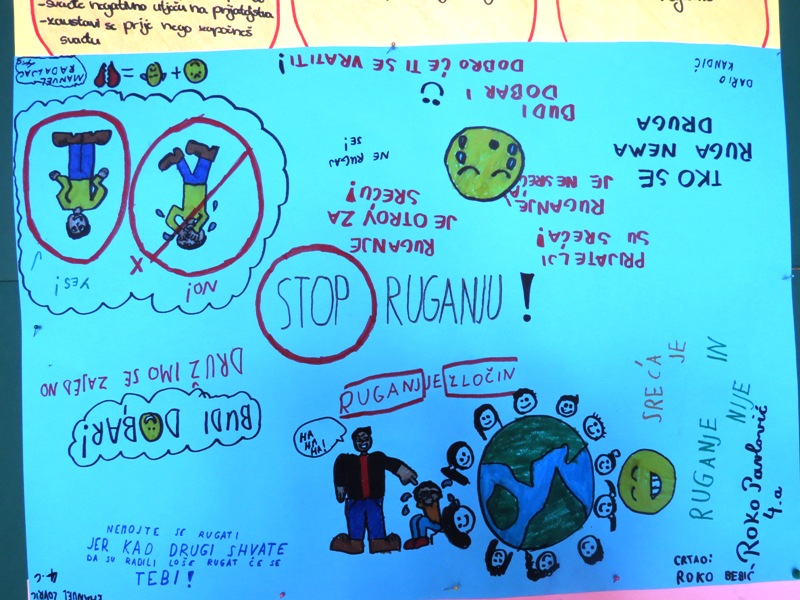 -svađe negativno utječu na prijateljstva
-zaustavi se prije nego započneš
svađu
MANUEL
RADALJAC
DARIO
KANDIĆ
BUDI
DOBAR I
DOBRO ĆE TI SE VRATITI!
TKO SE
RUGA NEMA
DRUGA
NE RUGAJ
SE!
RUGANJE
JE OTROV ZA
SREĆU!
RUGANJE
JE NESREĆA
PRIJATELJI
SU SREĆA!
YES!
NO!
X
STOP RUGANJU!
DRUŽIMO SE ZAJEDNO
BUDI DOBAR!
RUGANJE JE ZLOČIN
HA
HA
HA!
SREĆA
JE
RUGANJE NIJE IN
NEMOJTE SE RUGATI
JER KAO DRUGI SHVATE
DA SU RADILI LOŠE RUGAT ĆE SE
TEBI!
EMANUEL LOVRIĆ
4.c
CRTAO:
ROKO BEBIĆ
ROKO Pavlović
4.a